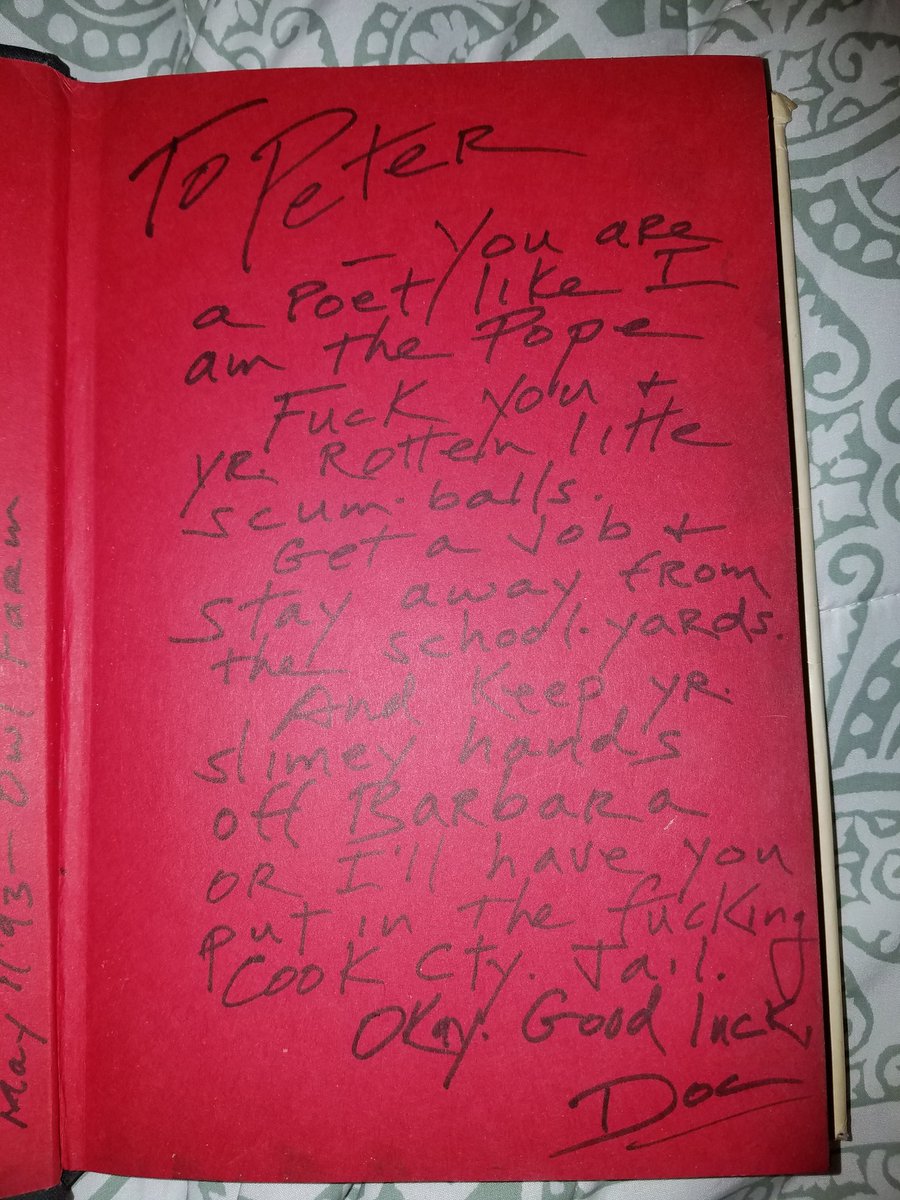 To Peter
— You are
a Poet, like I
am the Pope
Fuck you +
yr. Rotten little
scum-balls.
Get a Job +
stay away from
the school-yards.
And keep yr.
slimey hands
off Barbara
or I'll have you
put in the fucking
Cook Cty. Jail.
Okay. Good luck,
Doc
May 11 '93 — Owl Farm